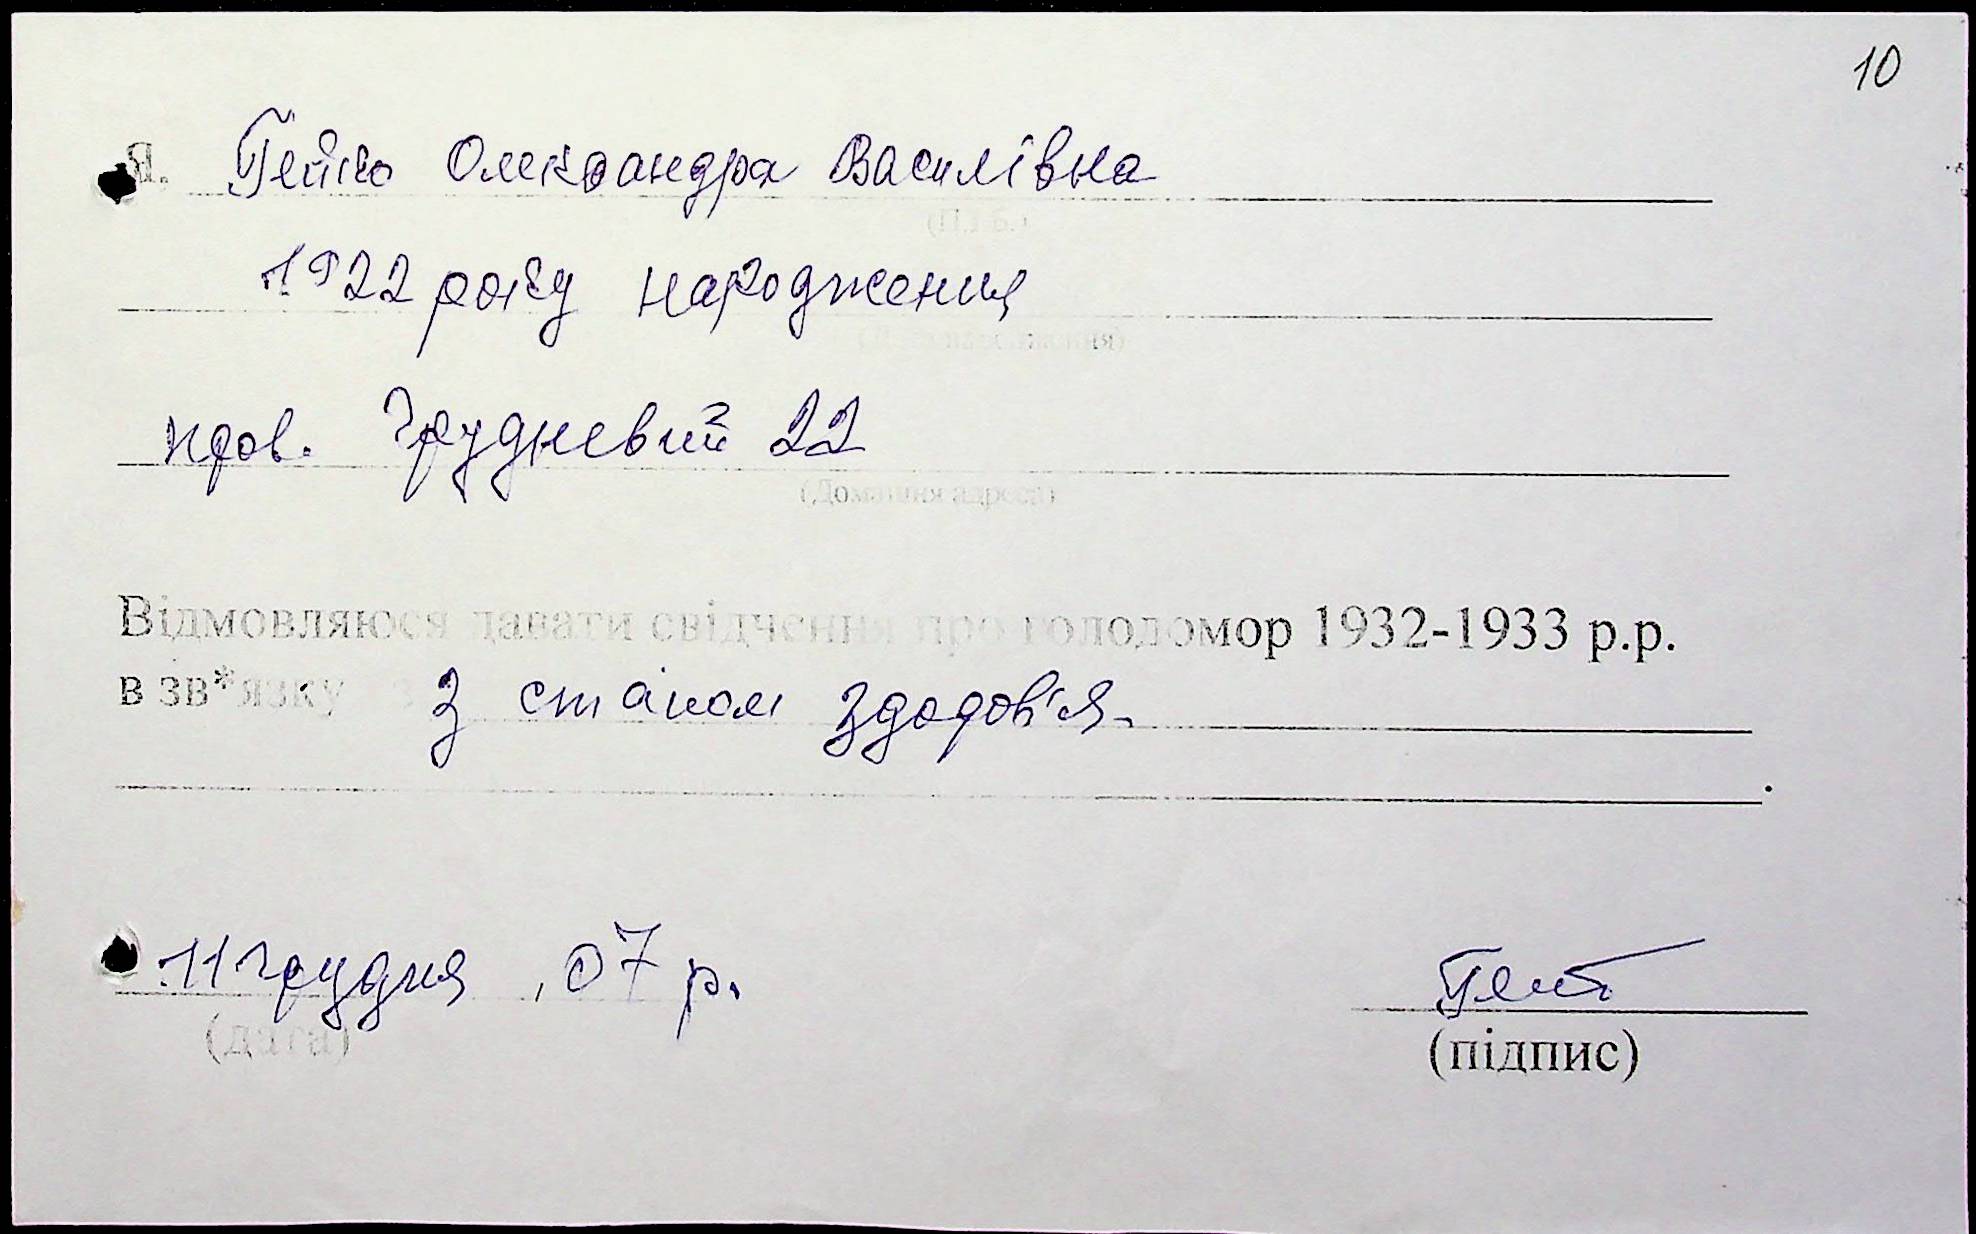 10
Я, Гейко Олександра Василівна
(П.І.Б.)
1922 року народження
(Дата народження)
пров. Грудневий 22
(Домашня адреса)
Відмовляюся давати свідчення про голодомор 1932-1933 р.р.
в зв*язку з з станом здоров'я.
11 грудня , 07 р.
(дата)
(підпис)